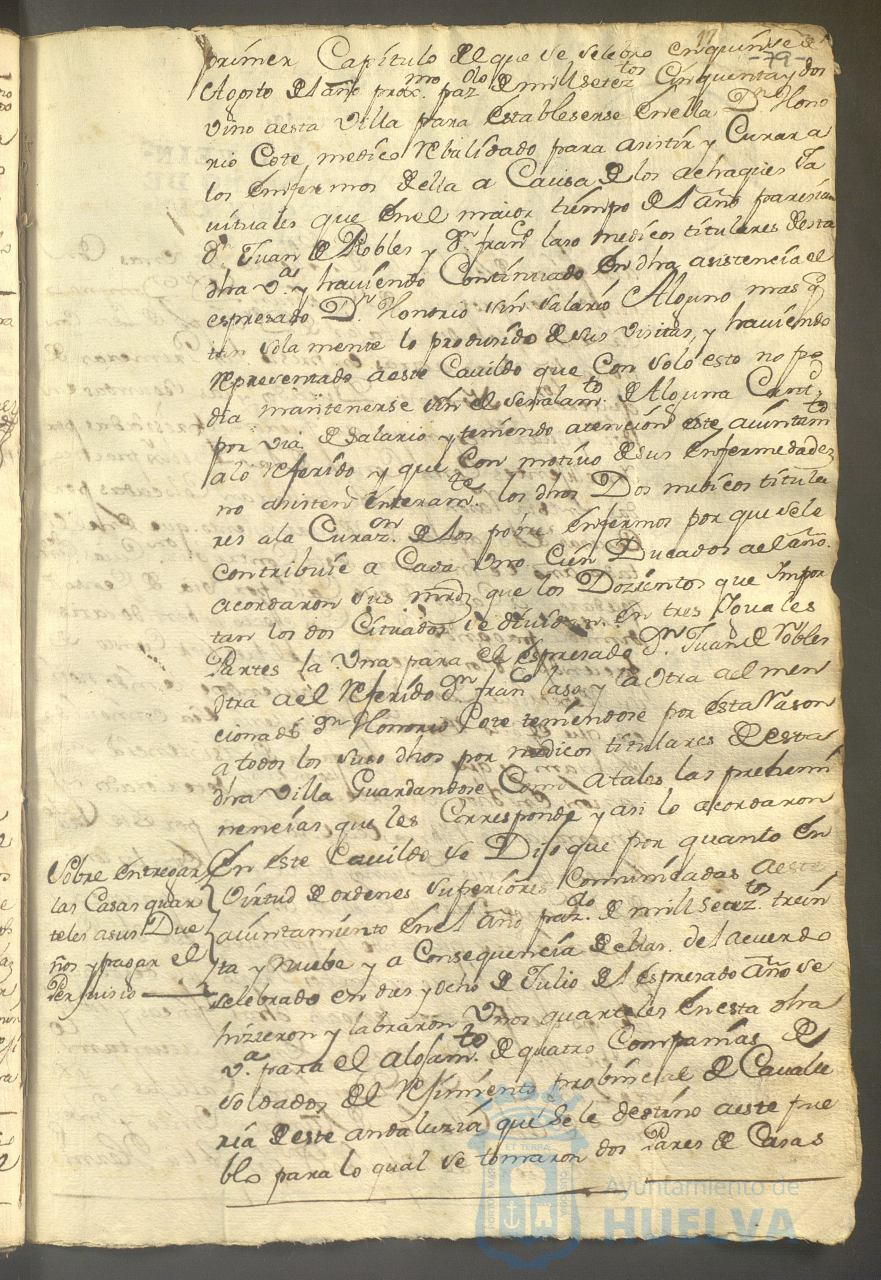 17
-79-
primer Capitulo de que seselebro en quinse de
Agosto del año prox.mo paz.do de mill setez.tos Cinquenta y dos
vino a esta Villa para establesense en ella D.n Hono
rio Cote, medico rebalidado para asistir y Curar a
los enfermos della a Causa de los achaques ha
vituales que en el maior tiempo del año paresian
d.n Juan de Robles y d.n fran.co laso medicos titulares desta
dha v.a y haviendo Continuado en dha asistencia el
espresado D.n Honorio sin salario Alguno mas q
tan solamente lo produsido de sus visitas, y haviendo
representado a este Cavildo que Con solo esto no po
dia mantenerse sin el señalam.to de Alguna Cant.d
por via de salario y teniendo atencion este ayuntam.to
a lo referido y que Con motivo de sus enfermedades
no asisten enteram.te los dhos Dos medicos titula
res a la Curaz.on de los pobres enfermos por que se le
contribuie a Cada uno Cien Ducados al año.
acordaron sus mrds que los Dozientos que Impor
tan los dos Citados se dividan en tres Iguales
Partes la una para el espresado D.n Juan de Robles
otra a el referido d.n fran.co laso y la otra a el men
cionado d.n Honorio Cote teniendose por esta Rason
a todos los suso dhos por medicos titulares de esta
dha Villa Guardandose Como a tales las prehemi
nencias que les Corresponde y asi lo acordaron
Sobre entregar
las Casas quar
teles a sus Due
ños y pagar el
Perjuisio
En este Cavildo se Dijo que por quanto en
Virtud de ordenes superiores Comunicadas a este
ayuntamiento en el año paz.do de mill setez.tos trein
ta y nuebe y a Consequencia de ellas, del acuerdo
selebrado en dies y ocho de Julio del espresado año se
hizieron y labraron Unos quarteles en esta dha
v.a para el alojam.to de quatro Compañias de
soldados del Rejimiento probincial de Cavalle
ria de este andaluzia que se le destino a este pue
blo para lo qual se tomaron dos Pares de Casas
Ayuntamiento de
HUELVA